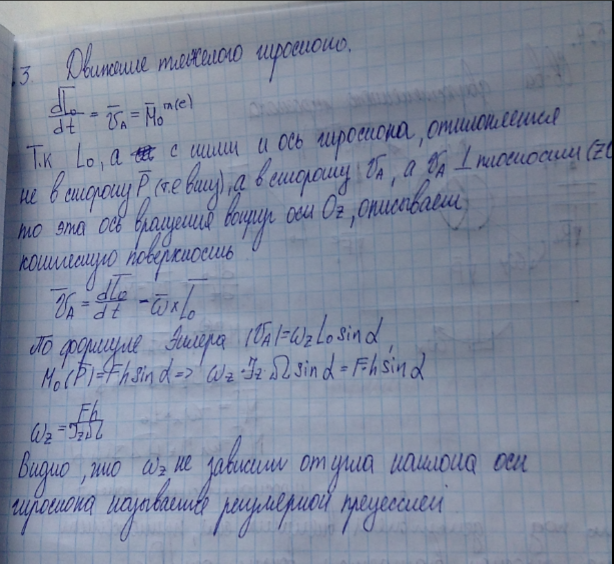 .3. Движение тяжелого гироскопа.
dL̅₀/dt = v̅_A = M̅₀^m(e)
Т.к L₀, а с ними и ось гироскопа, отклоняется
не в сторону P̅ (т.е вниз), а в сторону v̅_A, а v̅_A ⊥ плоскости (zO
то эта ось вращения вокруг оси Oz, описывает
коническую поверхность
v̅_A = dL̅₀/dt - ω̅ × L̅₀
По формуле Эйлера |v̅_A| = ω_z L₀ sin α,
M₀(P̅) = Fh sin α => ω_z · J_z · Ω sin α = Fh sin α
ω_z = Fh/J_zΩ
Видно, что ω_z не зависит от угла наклона оси
гироскопа называется регулярной прецессией